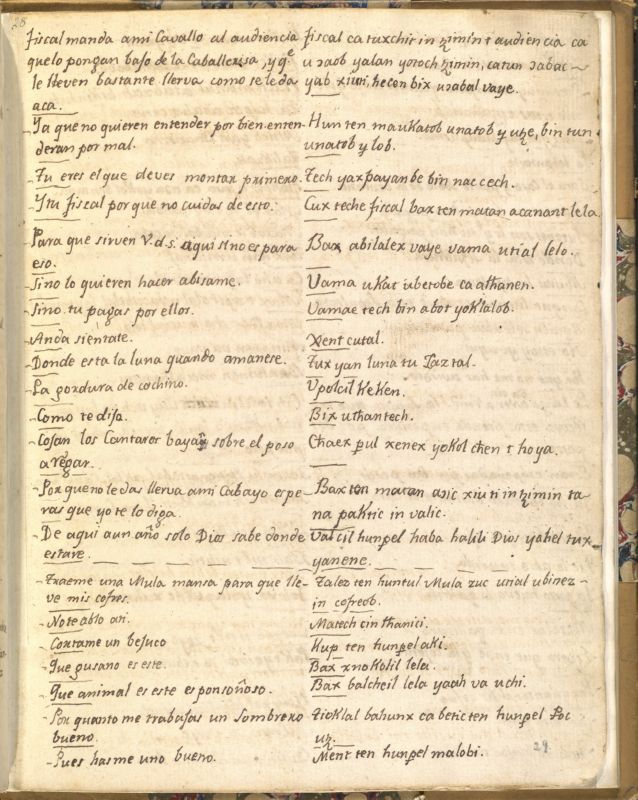 28
fiscal manda ami Cavallo al audiencia
quelo pongan bajo de la Caballerisa, y q.e
le lleven bastante llerva como se le da
aca.
Ya que no quieren entender por bien enten-
deran por mal.
Tu eres el que deves montar primero.
Y tu fiscal por que no cuidas de esto.
Para que sirven V.d.s. aqui sino es para
eso.
Sino lo quieren hacer abisame.
Sino tu pagas por ellos.
Anda sientate.
Donde esta la luna quando amanese.
La gordura de cochino.
Como te dijo.
Cojan los Cantaros bayan sobre el poso
a regar.
Por que no le das llerva ami Cabayo espe-
ras que yo te lo diga.
De aqui a un año solo Dios sabe donde
estare.
Traeme una Mula mansa para que lle-
ve mis cofres.
No te ablo ati.
Cortame un bejuco
Que gusano es este.
Que animal es este es ponsoñoso.
Por quanto me trabajas un Sombrero
bueno.
Pues hasme uno bueno.
fiscal ca tuxchit in tzimin t audiencia ca
u ɔaob yalan yotoch tzimin, catun ɔabac
yab xiuti, hecen bix uɔabal vaye.
Hun ten ma u katob u natob y utz, bin tun
unatob y lob.
Tech yax payanbe bin nac cech.
Cux teche fiscal bax ten matan a canant lela.
Bax abilalex vaye vama utial lelo.
Vama u kat u betobe ca a thanen.
Vamae tech bin a bot yoklalob.
Xent cutal.
Tux yan luna tu
Vpolcil keken.
Bix uthantech.
Chaex pul xenex yokol chen t hoya.
Bax ten matan aɔic xiuti in tzimin ta
na paktic in valic.
hunpel haba halili Dios yahel tux
yanene.
Talez ten huntul Mula zuc utial ubinez
in cofreob.
Matech cin thanici.
Kup ten hunpel aki.
Bax xnokolil lela.
Bax balcheil lela yaah va u chi.
Tioklal bahunx ca betic ten hunpel Poc
utz.
Ment ten hunpel malobi.
29